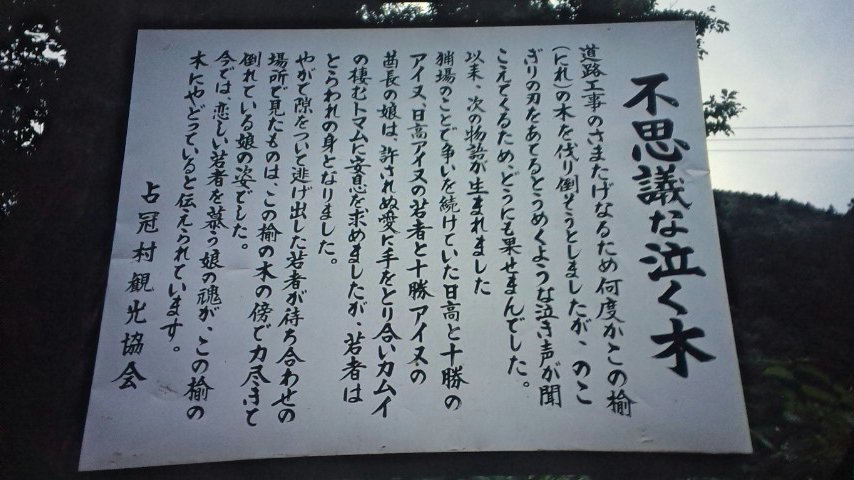 不思議な泣く木
道路工事のさまたげなるため何度かこの楡
(にれ)の木を伐り倒そうとしましたが、のこ
ぎりの刃をあてるとうめくような泣き声が聞
こえてくるため、どうにも果せまんでした。
以来、次の物語が生まれました
猟場のことで争いを続けていた日高と十勝の
アイヌ、日高アイヌの若者と十勝アイヌの
酋長の娘は、許されぬ愛に手をとり合いカムイ
の棲むトマムに安息を求めましたが、若者は
とらわれの身となりました。
やがて隙をついて逃げ出した若者が待ち合わせの
場所で見たものは、この楡の木の傍で力尽きて
倒れている娘の姿でした。
今では、恋しい若者を慕う娘の魂が、この楡の
木にやどっていると伝えられています。
占冠村観光協会